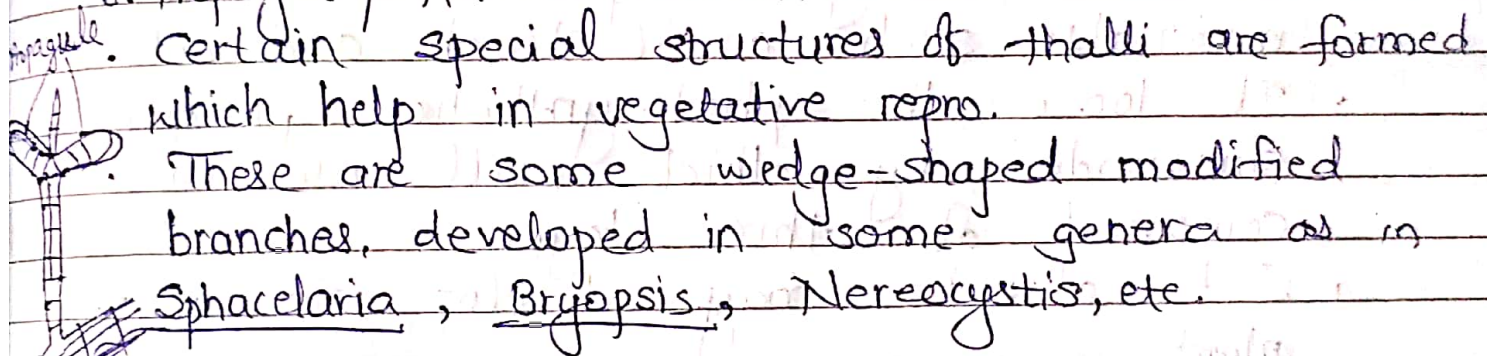 . Certain special structures of thalli are formed
which help in vegetative repro.
. These are some wedge-shaped modified
branches, developed in some genera as in
Sphacelaria, Bryopsis, Nereocystis, etc.